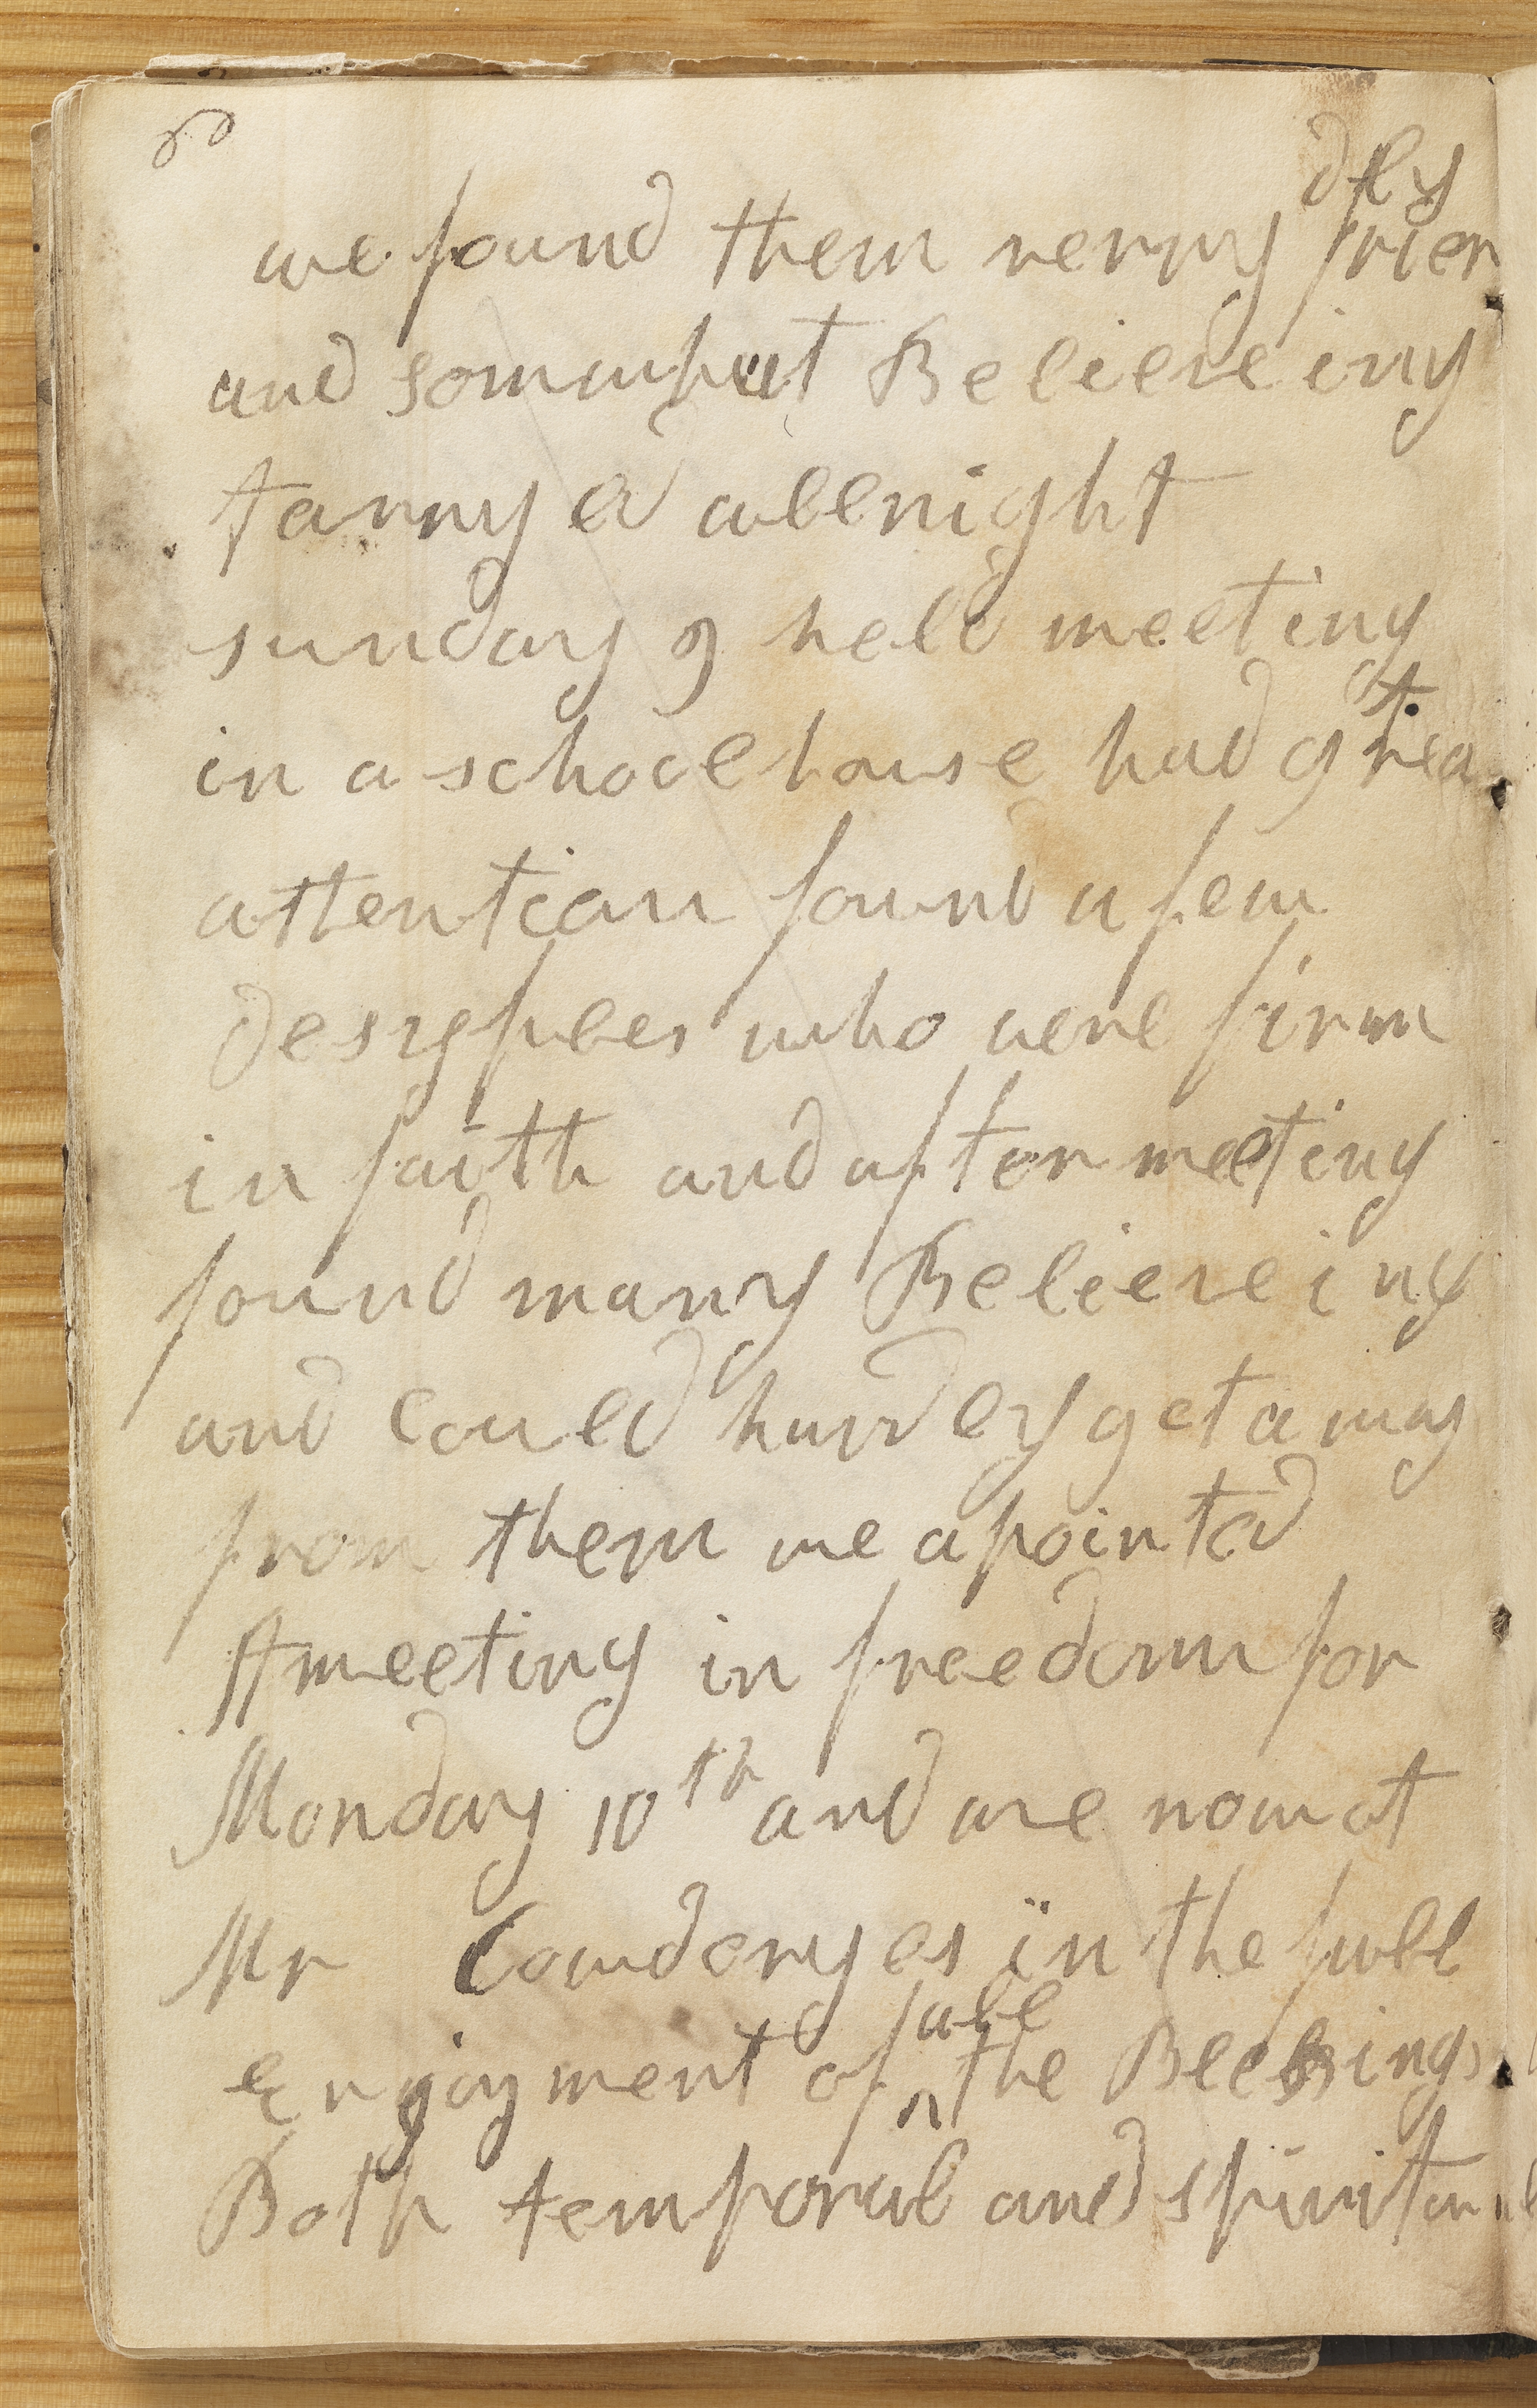 60
we found them verry friendly
and somwhat Believeing
tarryed allnight
sunday 9 held meeting
in a schoolhouse had great
attention found a few
desyples who were firm
in faith and after meeting
found many Believeing
and could hardly get away
from them we apointed
A meeting in freedom for
Monday 10th and are now at
Mr Cowderyes in the full
Enjoyment of all the Blessings
Both temporal and spiritual